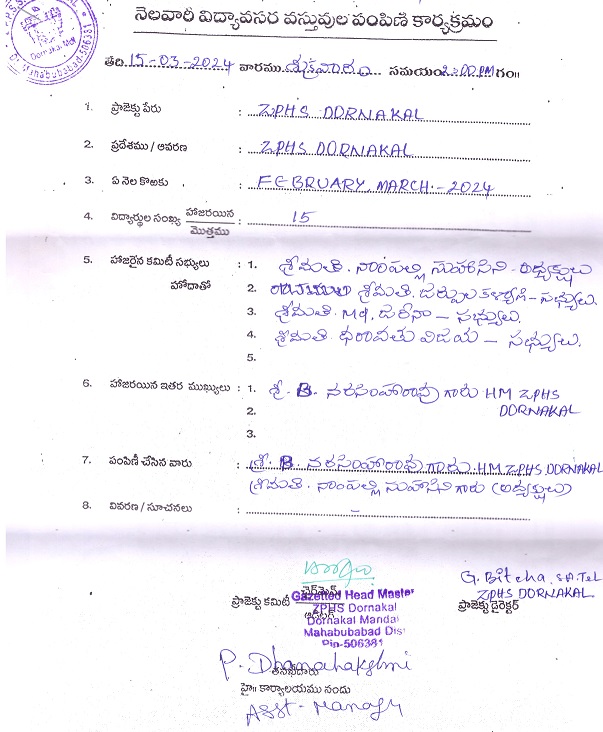 నెలవారీ విద్యావసర వస్తువుల పంపిణి కార్యక్రమం
Dornakal. Mdl
Mahabubabad-506381
తేది. 15-03-2024 వారము శుక్రవారం సమయం 2:00 PM గం॥
1. ప్రాజెక్టు పేరు : ZPHS DORNAKAL
2. ప్రదేశము / ఆవరణ : ZPHS DORNAKAL
3. ఏ నెల కొఱకు : FEBRUARY, MARCH - 2024
4. విద్యార్థుల సంఖ్య హాజరయిన / మొత్తము : 15
5. హాజరైన కమిటీ సభ్యులు : 1. శ్రీమతి. నాంపల్లి సుహాసిని - అధ్యక్షులు
హోదాతో 2. శ్రీమతి. జర్పుల కళ్యాణి - సభ్యులు.
3. శ్రీమతి. Md. జరీనా - సభ్యులు.
4. శ్రీమతి ధరావతు విజయ - సభ్యులు.
5.
6. హాజరయిన ఇతర ముఖ్యులు : 1. శ్రీ. B. నరసింహారావు గారు HM ZPHS
2. DORNAKAL
3.
7. పంపిణీ చేసిన వారు : శ్రీ. B. నరసింహారావు గారు. HM ZPHS DORNAKAL
శ్రీమతి. నాంపల్లి సుహాసిని గారు (అధ్యక్షులు)
8. వివరణ / సూచనలు : -
G. Bitcha. S.A. Tel
ZPHS DORNAKAL
ప్రాజెక్టు కమిటీ ఛైర్మెన్ ప్రాజెక్టు డైరెక్టర్
Gazetted Head Master
ZPHS Dornakal
Dornakal Mandal
Mahabubabad Dist
Pin-506381
P. Dhanalakshmi
తనిఖీదారు
హై॥ కార్యాలయము నందు
Asst - Manager